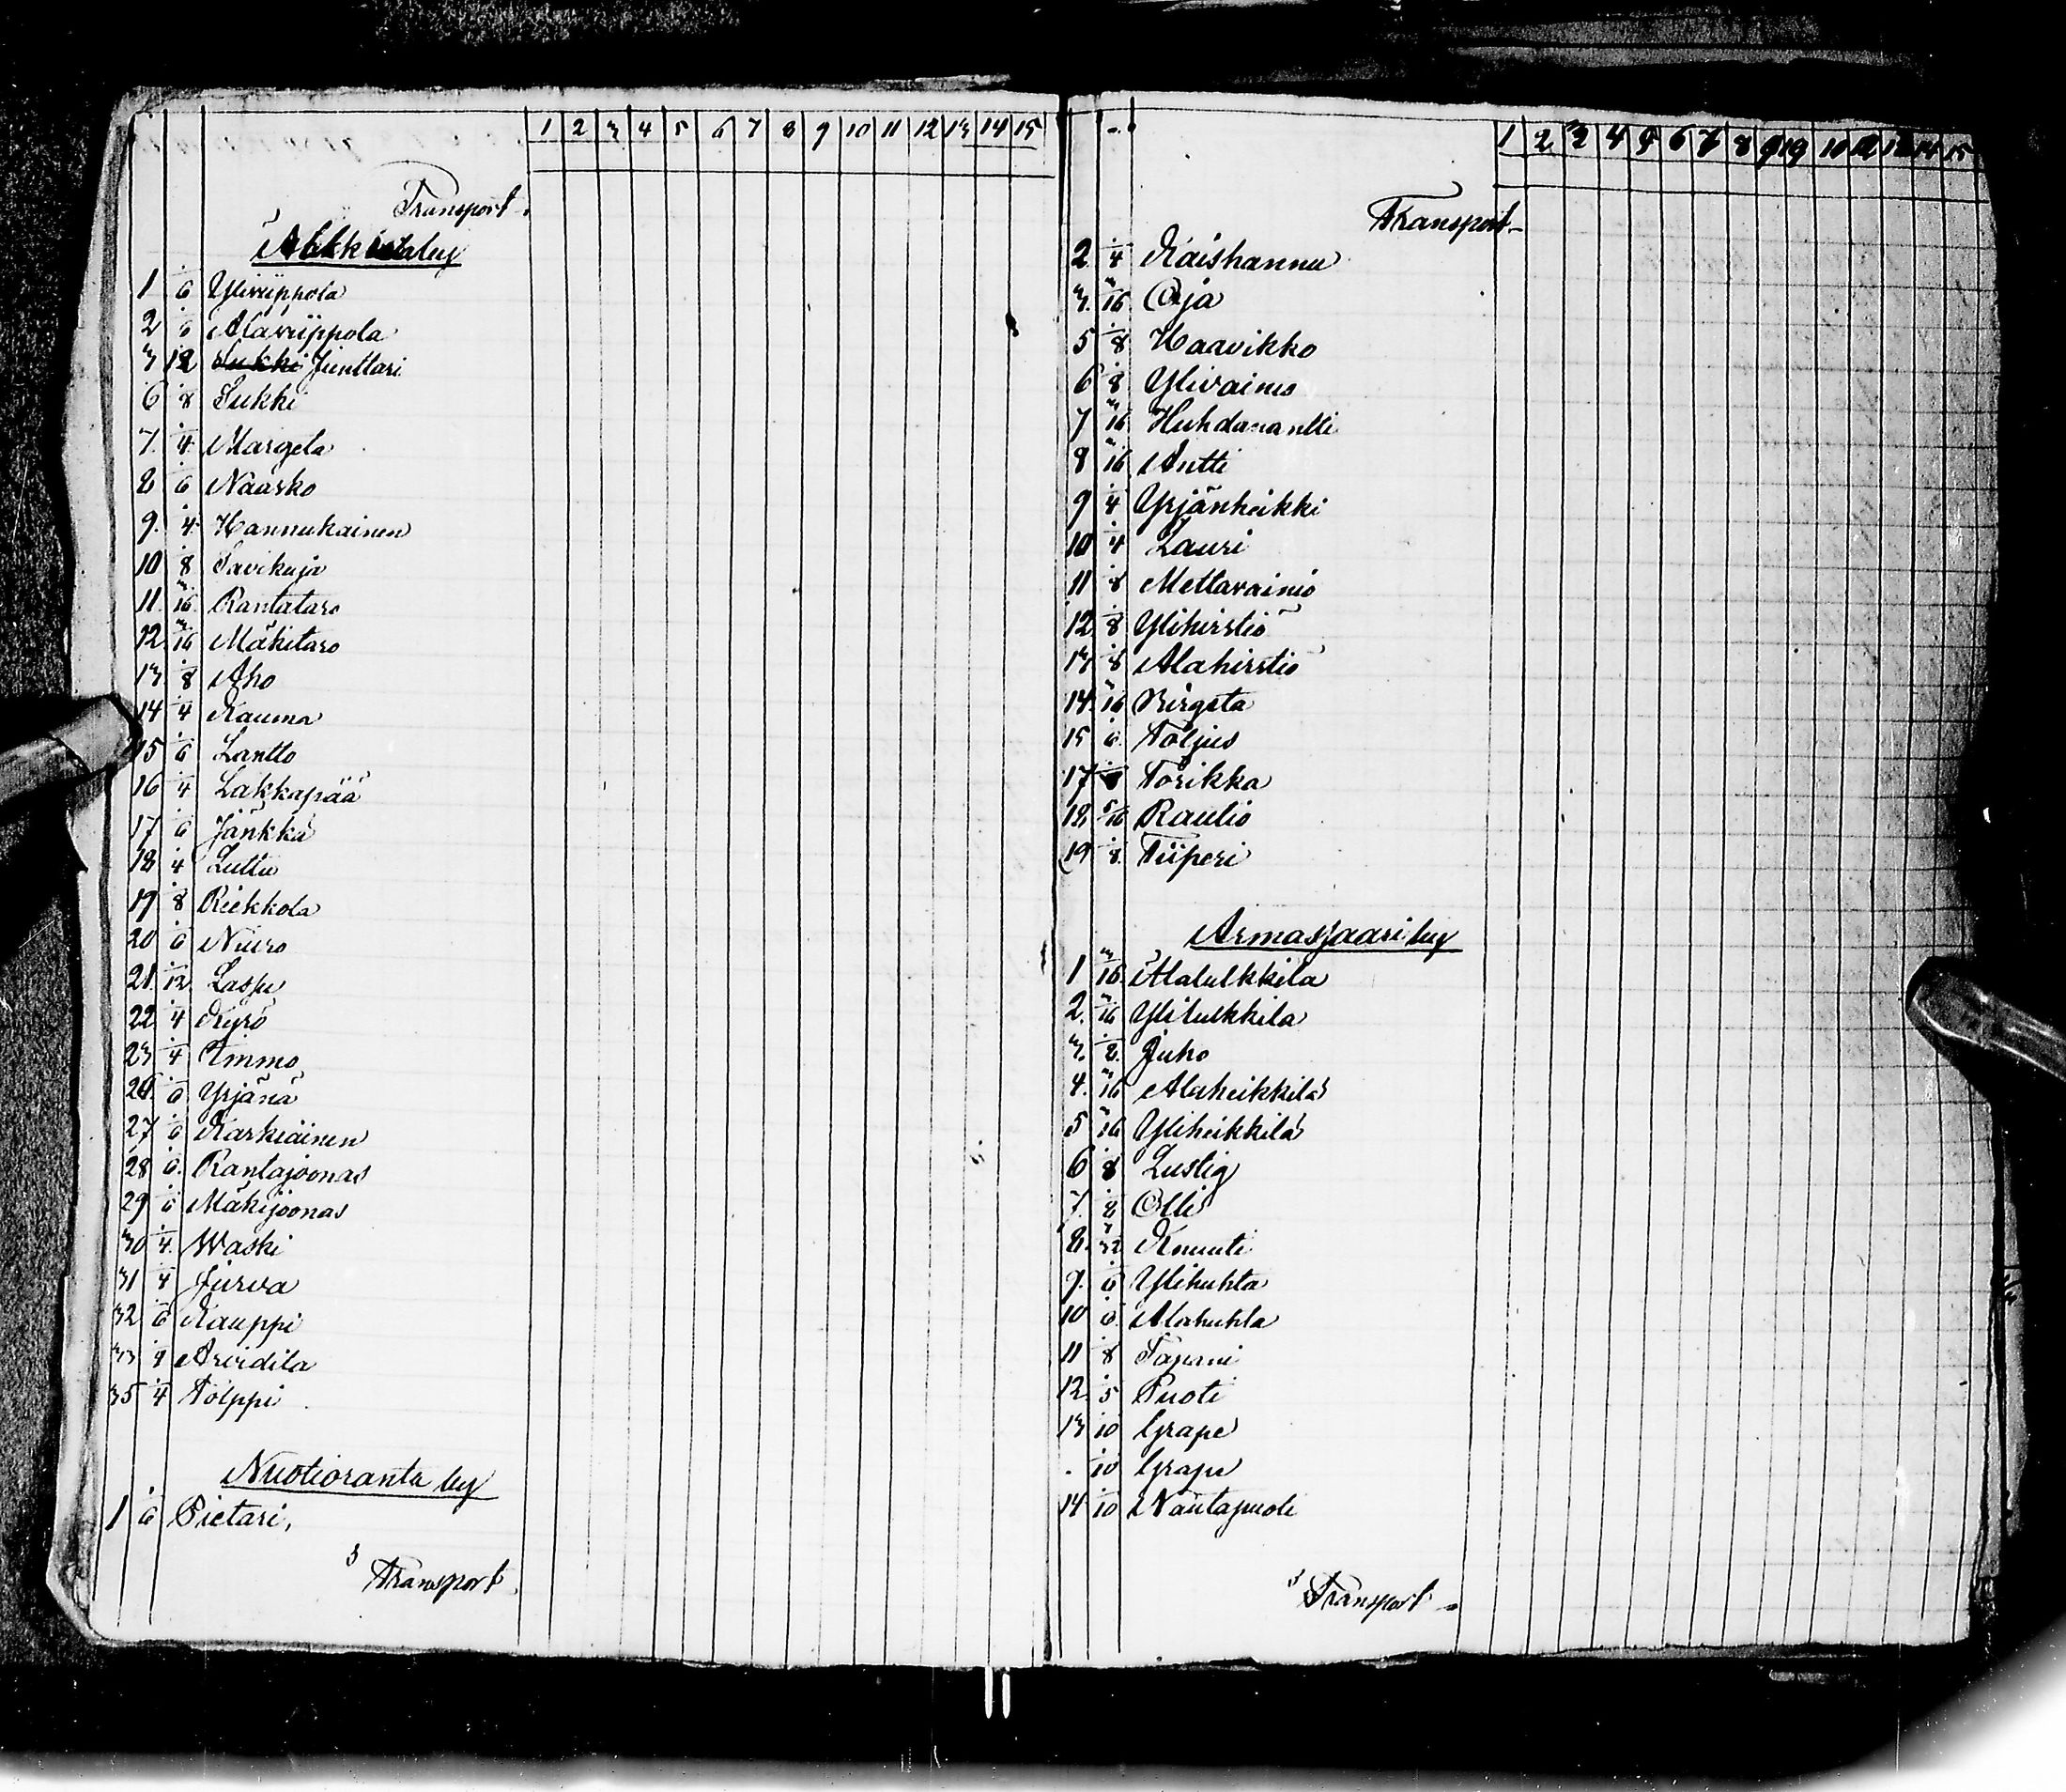 1 2 3 4 5 6 7 8 9 10 11 12 13 14 15
Transport
Alkkula by
1 1/6 Yliviippola
2 1/6 Alaviippola
3 1/12 Sukki Junttari
6 1/8 Sukki
7. 1/4 Margeta
8 1/6 Naasko
9. 1/4 Hannukainen
10 1/8 Savikuja
11. 3/16 Rantataro
12. 3/16 Mäkitaro
13 1/8 Aho
14 1/4 Kauma
15 1/6 Lantto
16 1/4 Lakkapää
17 1/6 Jänkkä
18 1/4 Luttu
19 1/8 Riekkola
20 1/6 Niuro
21. 1/12 Laspu
22 1/4 Kyrö
23 1/4 Timmo
1/6 Yrjänä
27 1/6 Karkiäinen
28 1/6 Rantajoonas
29 1/6 Mäkijoonas
30 1/4 Waski
31 1/4 Jurva
32 1/6 Kauppi
33 1/4 Arvidila
35 1/4 Tölppi
Nuotioranta by
1 1/6 Pietari,
Transport
1 2 3 4 5 6 7 8 9 10 11 12 13 14 15
Transport
2 1/4 Kaishannu
3. 3/16 Oja
5 1/8 Haavikko
6 1/8 Ylivainio
7 3/16 Huhdanantti
8 3/16 Antti
9 1/4 Yrjänheikki
10 1/4 Lauri
11 1/8 Mettavainio
12. 1/8 Ylihirstiö
13 1/8 Alahirstiö
14. 3/16 Pirgeta
15 1/6 Töljus
17 Törikka
18. 5/16 Raulio
19 1/8 Tiiperi
Armasjaari by
1 3/16 Alalulkkila
2. 3/16 Ylilulkkila
3. 1/8 Juho
4. 3/16 Alaheikkilä
5 3/16 Yliheikkilä
6 1/8 Lustig
7. 1/8 Olli
8. 7/32 Knuuti
9. 1/6 Ylihuhta
10 1/6 Alahuhta
11 1/8 Tapani
12. 1/5 Puoti
13 1/10 Grape
1/10 Grape
14 1/10 Nautapuoti
Transport